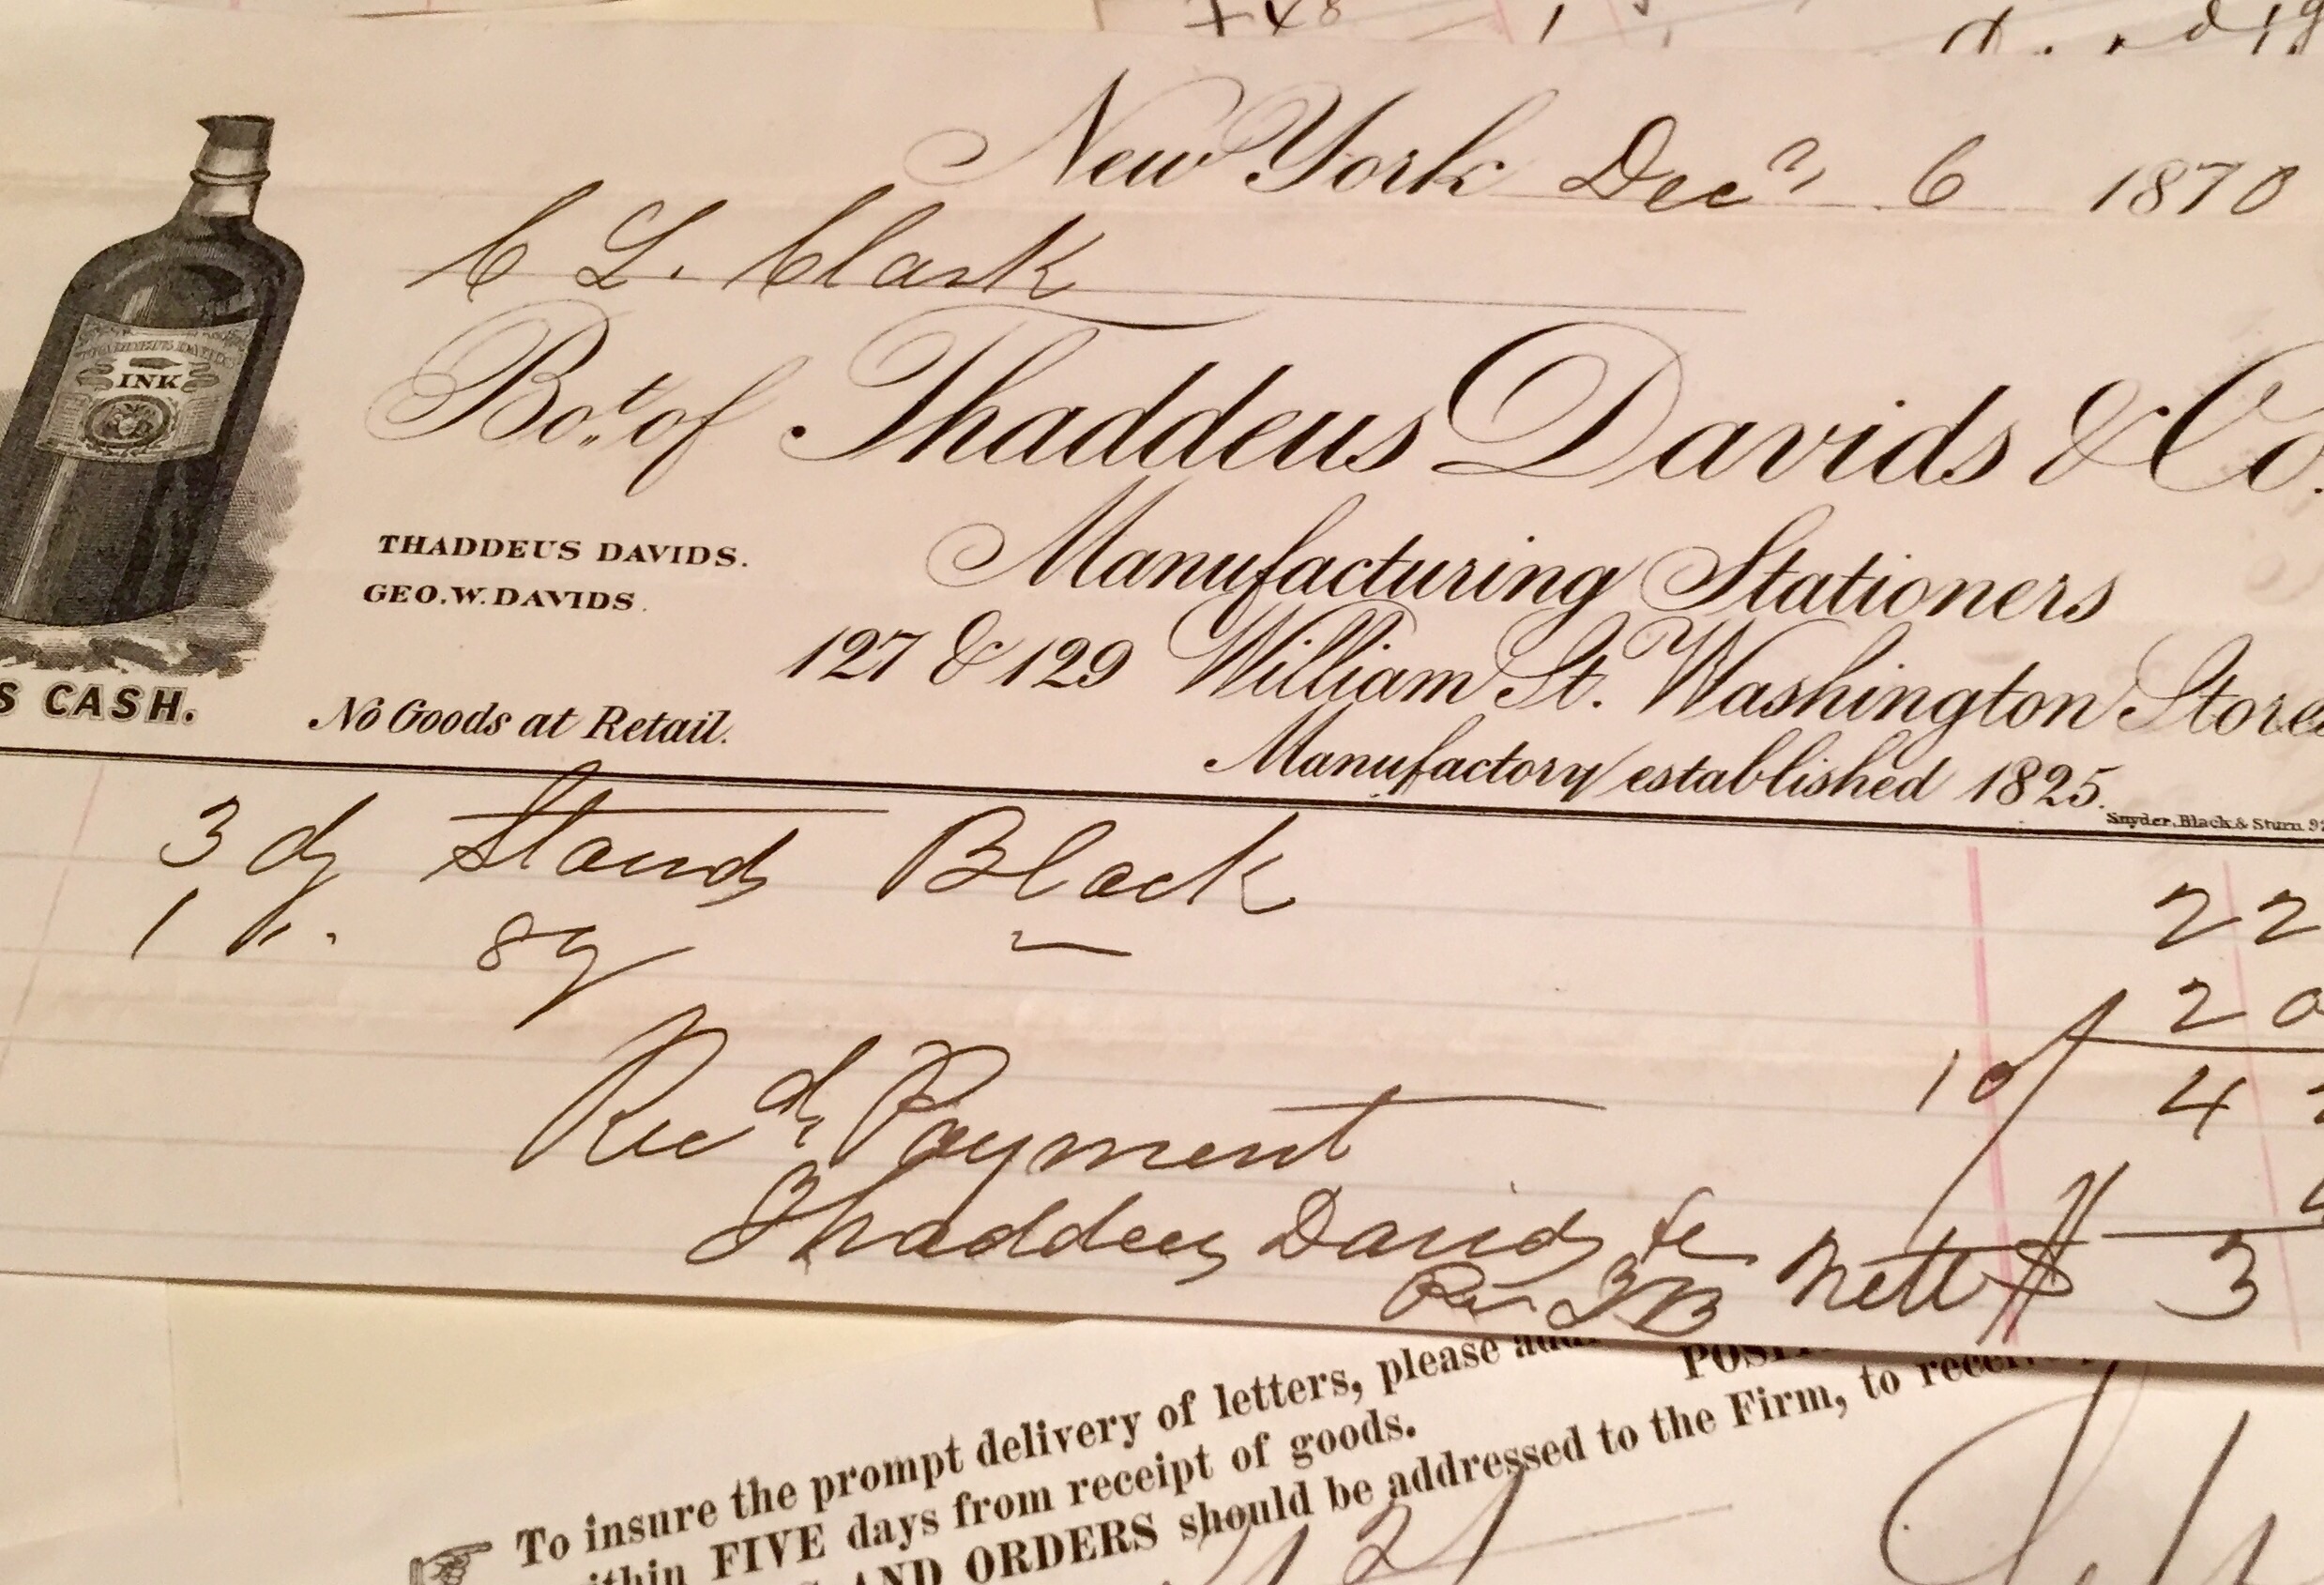 New York Decr, 6 1870
C L. Clark
Bot. of Thaddeus Davids & Co.
INK
THADDEUS DAVIDS.
GEO. W. DAVIDS.
Manufacturing Stationers
127 & 129 William St. Washington Stores
S CASH.
No Goods at Retail.
Manufactory established 1825.
Snyder, Black & Sturn. 92
3 dz Stands Black 22
1 ". 8 oz 20
10/ 4
Recd, Payment
Thaddeus Davids & Co Nett $ 3
To insure the prompt delivery of letters, please add
within FIVE days from receipt of goods.
AND ORDERS should be addressed to the Firm, to receive